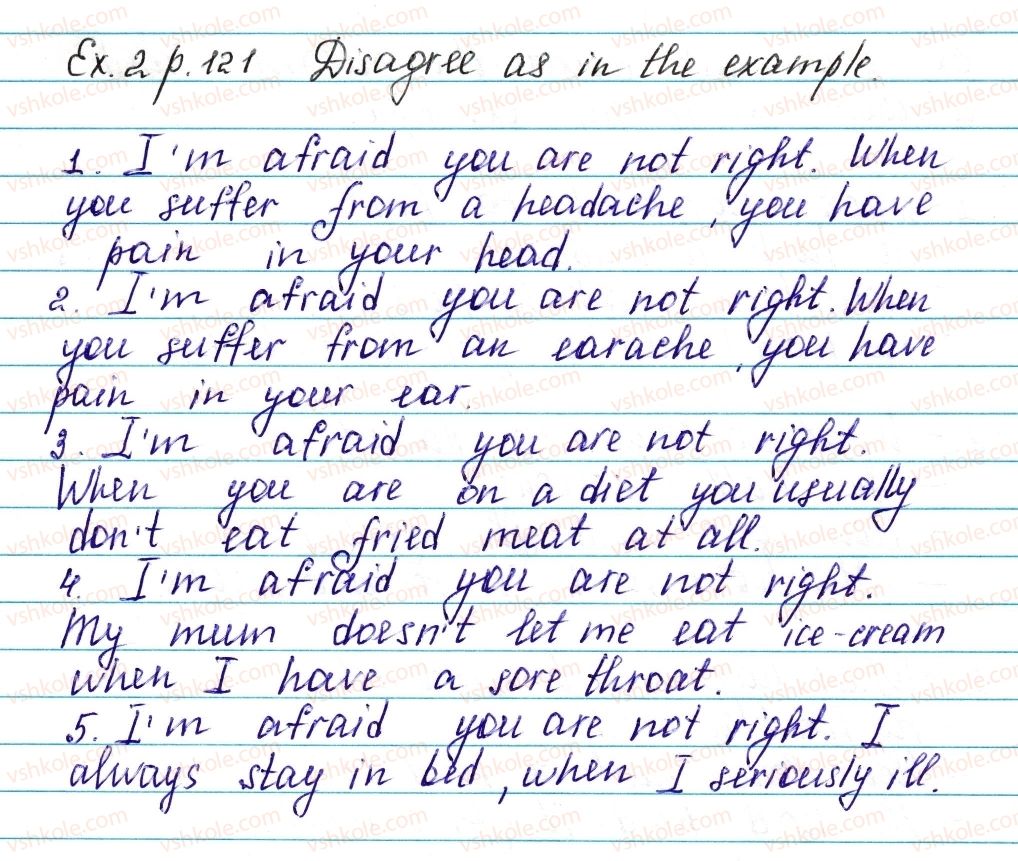 Ex. 2 p. 121 Disagree as in the example.
1. I'm afraid you are not right. When
you suffer from a headache, you have
pain in your head.
2. I'm afraid you are not right. When
you suffer from an earache, you have
pain in your ear.
3. I'm afraid you are not right.
When you are on a diet you usually
don't eat fried meat at all.
4. I'm afraid you are not right.
My mum doesn't let me eat ice-cream
when I have a sore throat.
5. I'm afraid you are not right. I
always stay in bed, when I seriously ill.
vshkole.com